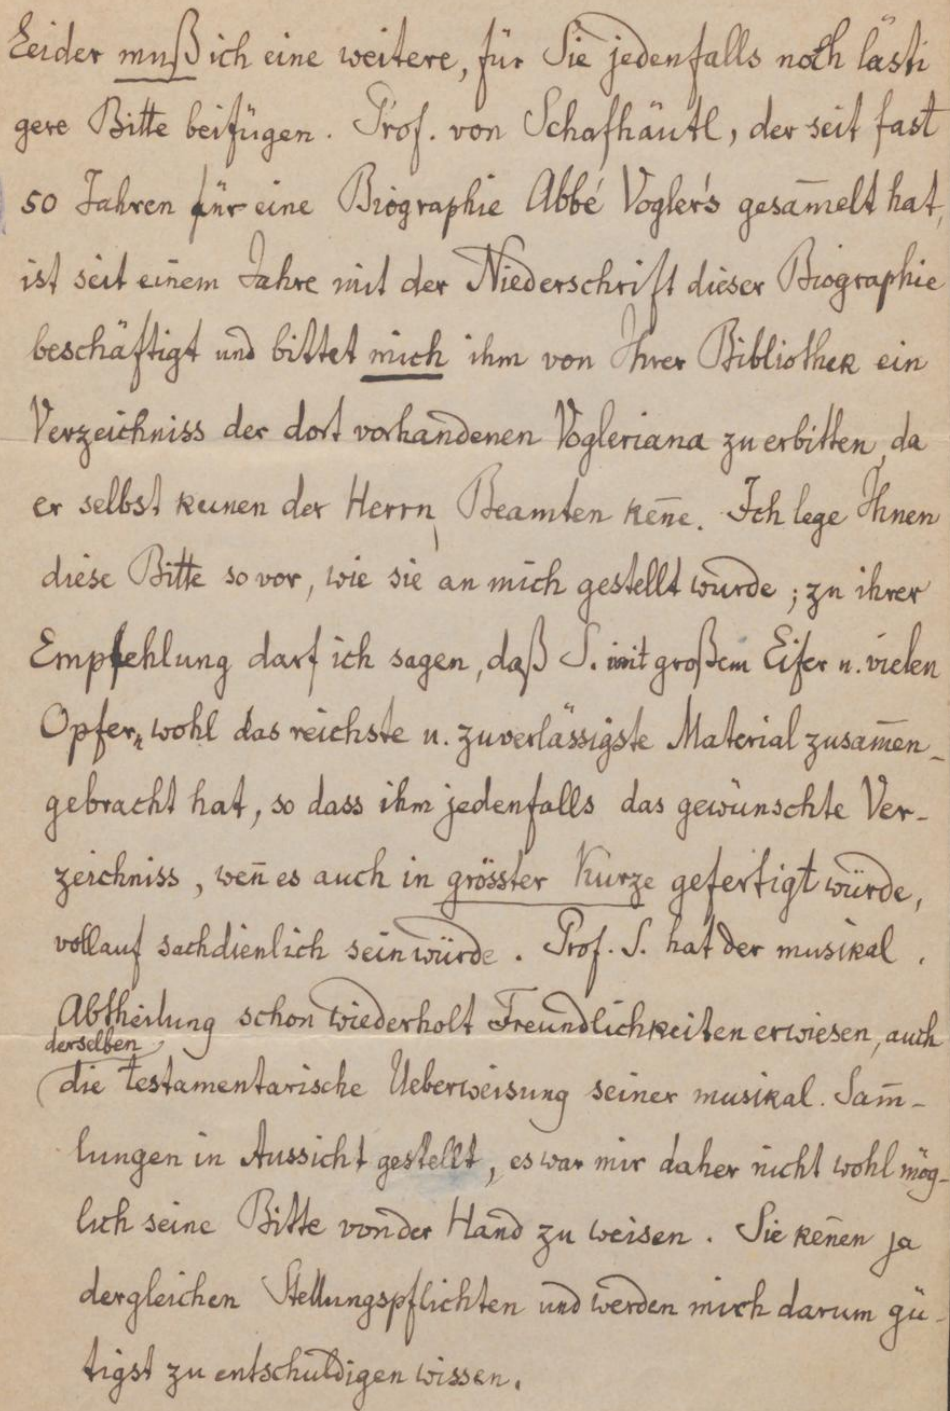 Leider muß ich eine weitere, für Sie jedenfalls noch lästi
gere Bitte beifügen. Prof. von Schafhäutl, der seit fast
50 Jahren für eine Biographie Abbé Vogler's gesam̅elt hat,
ist seit einem Jahre mit der Niederschrift dieser Biographie
beschäftigt und bittet mich ihm von Ihrer Bibliothek ein
Verzeichniss der dort vorhandenen Vogleriana zu erbitten, da
er selbst keinen der Herrn Beamten ken̅e. Ich lege Ihnen
diese Bitte so vor, wie sie an mich gestellt wurde; zu ihrer
Empfehlung darf ich sagen, daß S. mit großem Eifer u. vielen
Opfern wohl das reichste u. zuverlässigste Material zusam̅en-
gebracht hat, so dass ihm jedenfalls das gewünschte Ver-
zeichniss, wen̅ es auch in grösster Kürze gefertigt würde,
vollauf sachdienlich sein würde. Prof. S. hat der musikal.
Abtheilung schon wiederholt Freundlichkeiten erwiesen, auch
derselben
die testamentarische Ueberweisung seiner musikal. Sam̅-
lungen in Aussicht gestellt, es war mir daher nicht wohl mög-
lich seine Bitte von der Hand zu weisen. Sie ken̅en ja
dergleichen Stellungspflichten und werden mich darum gü-
tigst zu entschuldigen wissen.